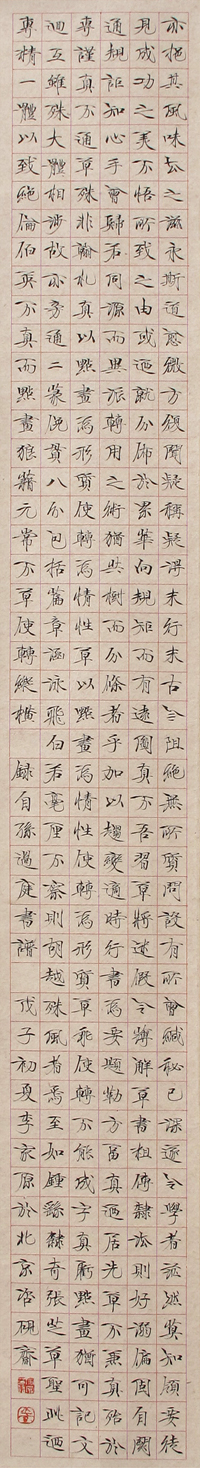 亦挹其風味去之滋永斯道愈微方復聞疑稱疑得末行末古今阻絕無所質問設有所會緘秘已深遂令學者茫然莫知領要徒
見成功之美不悟所致之由或迺就分佈於累年向規矩而有遠圖真不吾習草將迷假令薄解草書粗傳隸法則好溺偏固自閡
通規詎知心手會歸若同源而異派轉用之術猶共樹而分條者乎加以趨變適時行書為要題勒方畐真迺居先草不兼真殆於
專謹真不通草殊非翰札真以點畫為形質使轉為情性草以點畫為情性使轉為形質草乖使轉不能成字真虧點畫猶可記文
迴互雖殊大體相涉故亦旁通二篆俯貫八分包括篇章涵泳飛白若毫釐不察則胡越殊風者焉至如鍾繇隸奇張芝草聖此迺
專精一體以致絕倫伯英不真而點畫狼籍元常不草使轉縱橫 錄自孫過庭書譜 戊子初夏李家原於北京否硯齋